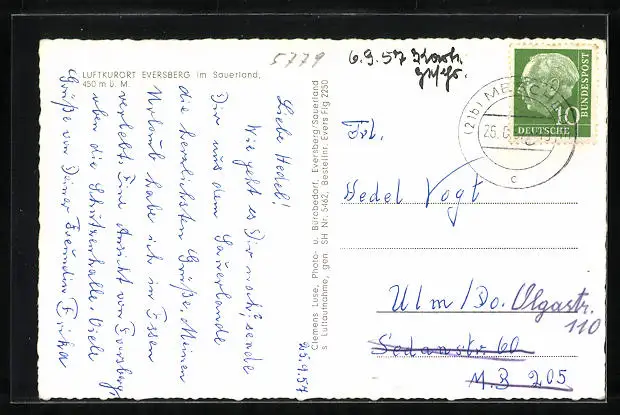 LUFTKURORT EVERSBERG im Sauerland,
450 m ü. M.
5779
6.9.57
25.9.57
Liebe Hedel!
Wie geht es Dir noch? sende
Dir aus dem Sauerlande
die herzlichsten Grüße. Meinen
Urlaub habe ich in Essen
verlebt. Eine Ansicht von Eversberg,
oben die Schützenhalle. Viele
Grüße von Deiner Freundin Erika
Clemens Luse, Photo- u. Bürobedarf, Eversberg/Sauerland
s Luftaufnahme, gen SH Nr. 5462, Bestellnr. Evers Flg 2250
DEUTSCHE
BUNDESPOST
10
(21b) MESCHEDE
c
Frl.
Hedel Vogt
Ulm/Do. Olgastr.
110
Sedanstr. 60
M.B 205